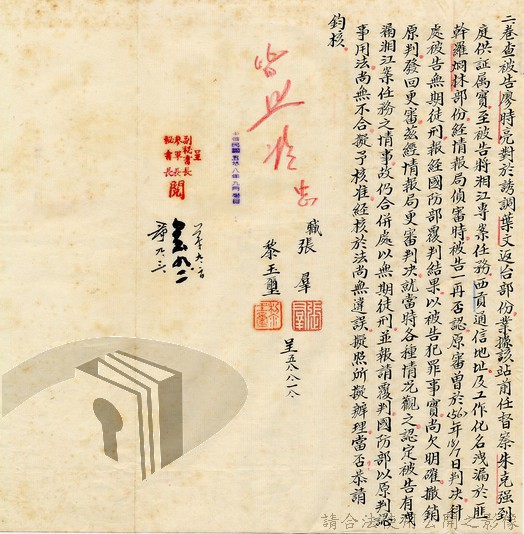 二卷查被告廖時亮對于誘調葉文返台部份業據該站前任督察朱克强到
庭供証属實至被告將湘江專案任務西貢通信地址及工作化名洩漏於匪
幹羅炯烋部份經情報局偵審時被告一再否認原審曾於56年8/7日判决科
處被告無期徒刑報經國防部覆判結果以被告犯罪事實尚欠明確撤銷
原判發回更審茲經情報局更審判决就當時各種情况觀之認定被告有洩
漏湘江案任務之情事故仍合併處以無期徒刑並報請覆判國防部以原判認
事用法尚無不合擬予核准經核於法尚無違誤擬照所擬辦理當否恭請
鈞核
職張羣
黎玉璽
呈五八八八
皆照准
呈
副秘書長
參軍長
秘書長
閱
請合法使用公開之影像